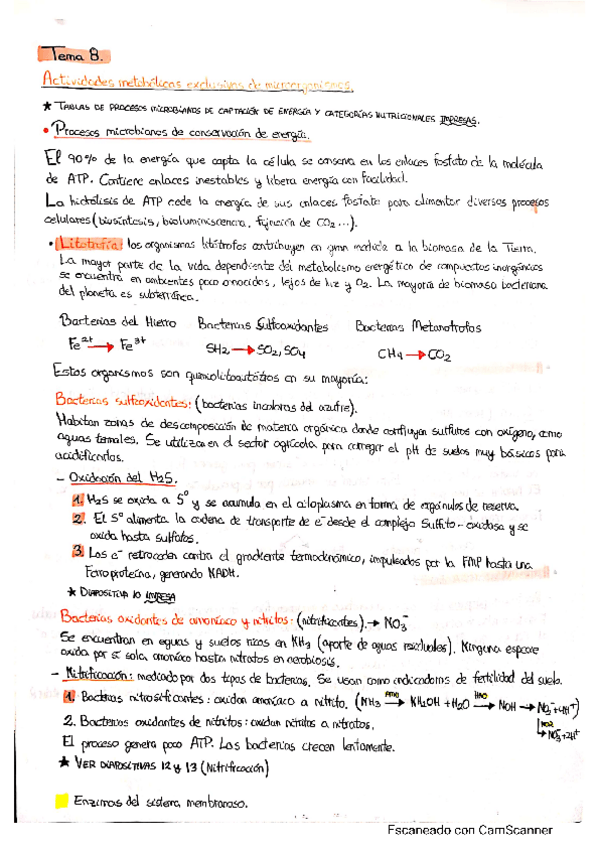 Tema 8.
Actividades metabólicas exclusivas de microorganismos.
★ TABLAS DE PROCESOS MICROBIANOS DE CAPTACIÓN DE ENERGÍA Y CATEGORÍAS NUTRICIONALES IMPRESAS.
• Procesos microbianos de conservación de energía.
El 90% de la energía que capta la célula se conserva en los enlaces fosfato de la molécula
de ATP. Contiene enlaces inestables y libera energía con facilidad.
La hidrólisis de ATP cede la energía de sus enlaces fosfato para alimentar diversos procesos
celulares (biosíntesis, bioluminiscencia, fijación de CO2 ...).
• Litotrofía: los organismos litótrofos contribuyen en gran medida a la biomasa de la Tierra.
La mayor parte de la vida dependiente del metabolismo energético de compuestos inorgánicos
se encuentra en ambientes poco conocidos, lejos de luz y O2. La mayoría de biomasa bacteriana
del planeta es subterránea.
Bacterias del Hierro Bacterias Sulfooxidantes Bacterias Metanotrofos
Fe2+ → Fe3+ SH2 → SO2, SO4 CH4 → CO2
Estos organismos son quimiolitoautótrofos en su mayoría:
Bacterias sulfooxidantes: (bacterias incoloras del azufre).
Habitan zonas de descomposición de materia orgánica donde confluyen sulfuros con oxígeno, como
aguas termales. Se utilizan en el sector agrícola para corregir el pH de suelos muy básicos para
acidificarlos.
- Oxidación del H2S.
1. H2S se oxida a S0 y se acumula en el citoplasma en forma de orgánulos de reserva.
2. El S0 alimenta la cadena de transporte de e- desde el complejo Sulfito-oxidasa y se
oxida hasta sulfatos.
3. Los e- retroceden contra el gradiente termodinámico, impulsados por la FMP hasta una
Ferroproteína, generando NADH.
★ DIAPOSITIVA 10 IMPRESA
Bacterias oxidantes de amoníaco y nitritos: (nitrificantes). → NO3-
Se encuentran en aguas y suelos ricos en NH3 (aporte de aguas residuales). Ninguna especie
oxida por sí sola amoníaco hasta nitratos en aerobiosis.
- Nitrificación: mediado por dos tipos de bacterias. Se usan como indicadores de fertilidad del suelo.
1. Bacterias nitrosificantes: oxidan amoníaco a nitrito. (NH3 → NH2OH + H2O → NOH → NO2- + 4H+)
2. Bacterias oxidantes de nitritos: oxidan nitritos a nitratos. ↳ NO3- + 2H+
El proceso genera poco ATP. Las bacterias crecen lentamente.
★ VER DIAPOSITIVAS 12 y 13 (Nitrificación)
Enzimas del sistema membranoso.
Escaneado con CamScanner